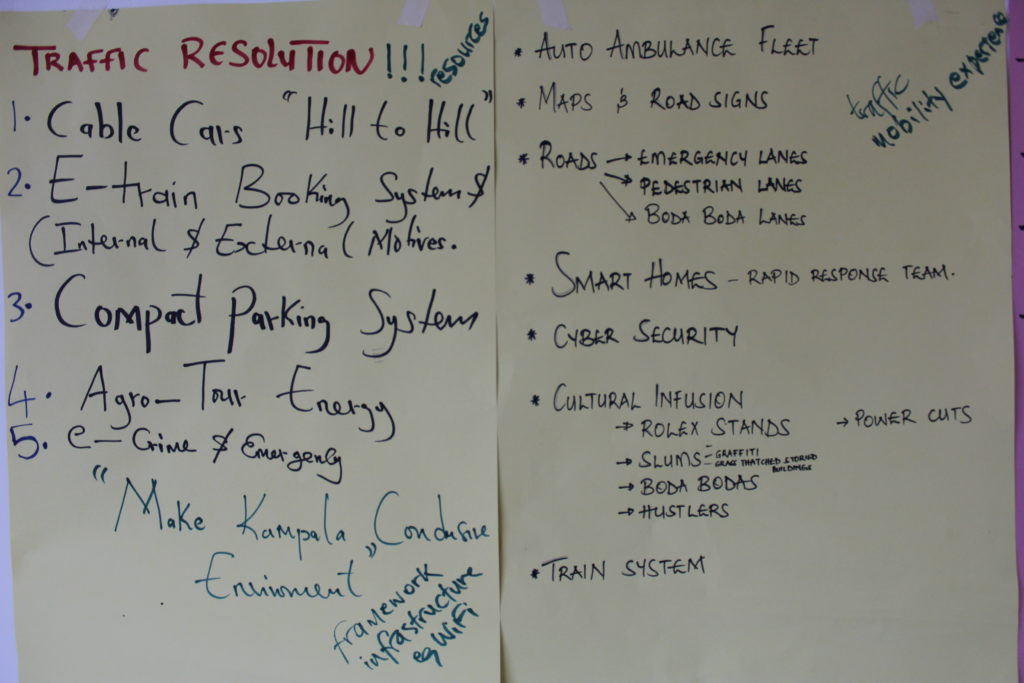 TRAFFIC RESOLUTION!!!
resources
1. Cable Cars "Hill to Hill"
2. E-train Booking System $
(Internal $ External Motives.
3. Compact Parking System
4. Agro-Tour Energy
5. e-Crime $ Emergency
"Make Kampala Condusive
Envinroment"
framework
infrastructure
eg WiFi
* AUTO AMBULANCE FLEET
* MAPS & ROAD SIGNS
traffic
mobility experts
* ROADS → EMERGENCY LANES
→ PEDESTRIAN LANES
→ BODA BODA LANES
* SMART HOMES - RAPID RESPONSE TEAM.
* CYBER SECURITY
* CULTURAL INFUSION
→ ROLEX STANDS → POWER CUTS
→ SLUMS - GRAFFITI
- GRASS THATCHED STORIED
BUILDINGS
→ BODA BODAS
→ HUSTLERS
* TRAIN SYSTEM